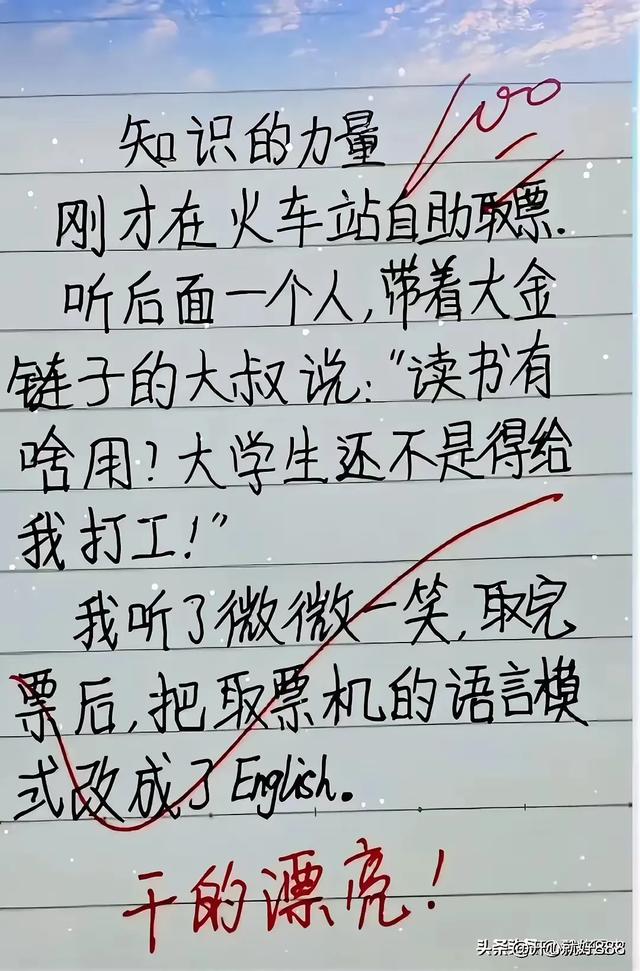 知识的力量
100
刚才在火车站自助取票.
听后面一个人,带着大金
链子的大叔说:“读书有
啥用?大学生还不是得给
我打工!”
我听了微微一笑,取完
票后,把取票机的语言模
式改成了English.
干的漂亮!
头条 @开心就好888